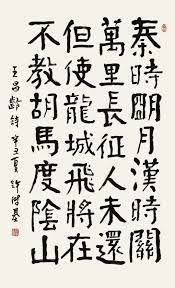 秦時明月漢時關
萬里長征人未還
但使龍城飛將在
不教胡馬度陰山
王昌齡詩 辛丑夏 許